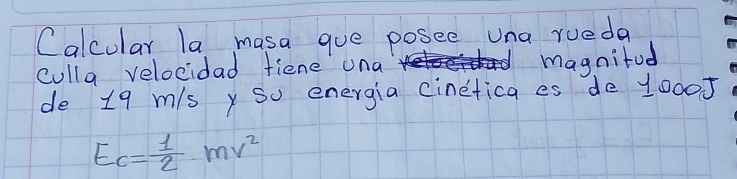 Calcular la masa que posee una rueda
culla velocidad tiene una magnitud
de 19 m/s y su energia cinética es de 1000J
Ec=\frac{1}{2} mv²